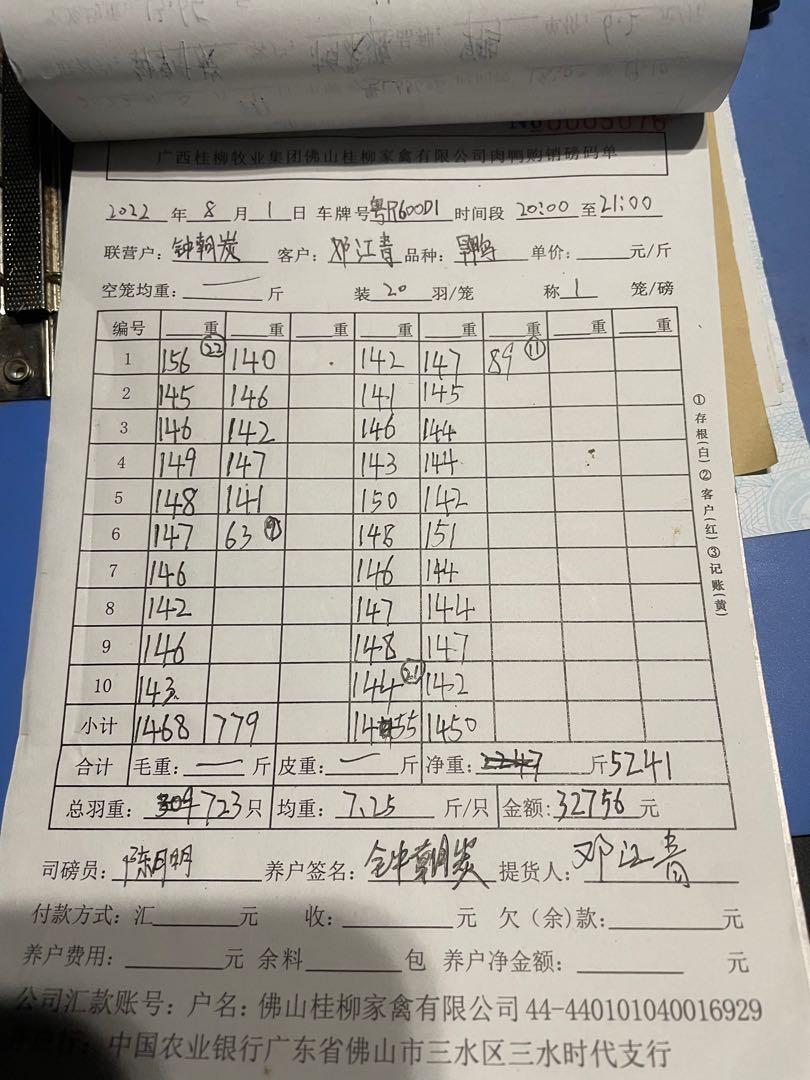 No 0005076
广西桂柳牧业集团佛山桂柳家禽有限公司肉鸭购销磅码单
2022 年 8 月 1 日 车牌号 粤R600D1 时间段 20:00 至 21:00
联营户: 钟朝炭 客户: 邓江青 品种: 鸭 单价: 元/斤
空笼均重: — 斤 装 20 羽/笼 称 1 笼/磅
编号 重 重 重 重 重 重 重 重
1 156 22 140 142 147 89 11
2 145 146 141 145
3 146 142 146 144
4 149 147 143 144
5 148 141 150 142
6 147 63 9 148 151
7 146 146 144
8 142 147 144
9 146 148 147
10 143 144 21 142
小计 1468 779 1455 1450
合计 毛重: — 斤 皮重: — 斤 净重: 斤 5241
总羽重: 723 只 均重: 7.25 斤/只 金额: 32756 元
司磅员: 陈明 养户签名: 钟朝炭 提货人: 邓江青
付款方式: 汇 元 收: 元 欠（余）款: 元
养户费用: 元 余料 包 养户净金额: 元
公司汇款账号: 户名: 佛山桂柳家禽有限公司 44-440101040016929
行: 中国农业银行广东省佛山市三水区三水时代支行
①存根(白)②客户(红)③记账(黄)